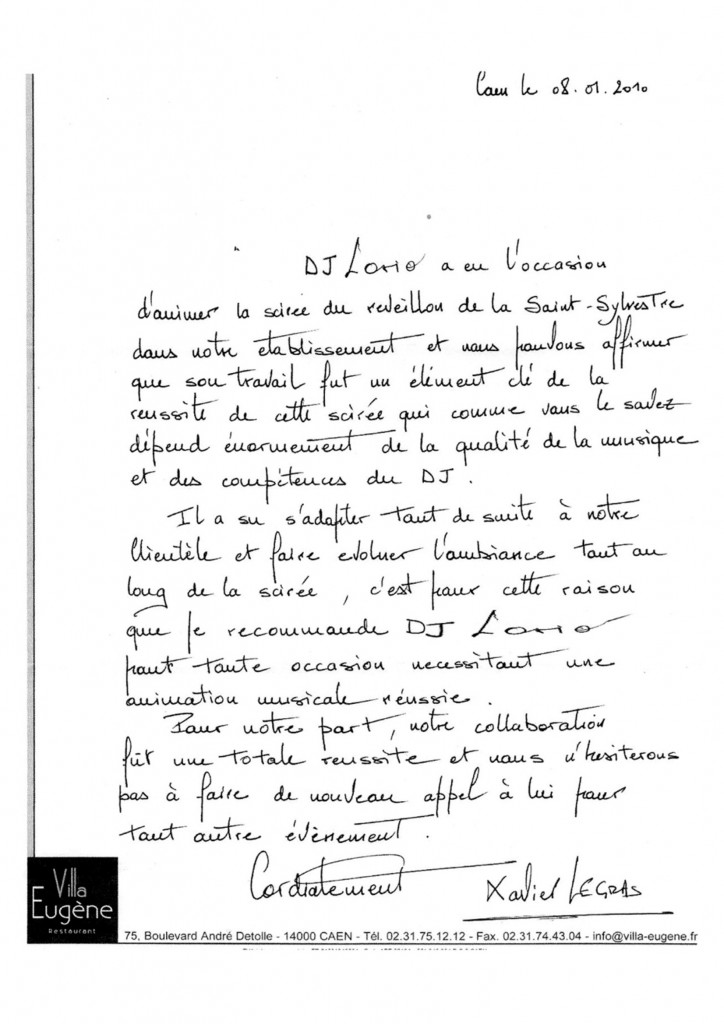 Caen le 08.01.2010
DJ Lorio a eu l'occasion
d'animer la soirée du reveillon de la Saint-Sylvestre
dans notre etablissement et nous pouvons affirmer
que son travail fut un élément clé de la
reussite de cette soirée qui comme vous le savez
dépend énormement de la qualité de la musique
et des compétences du DJ.
Il a su s'adapter tout de suite à notre
Clientèle et faire evoluer l'ambiance tout au
long de la soirée, c'est pour cette raison
que je recommande DJ Lorio
pout toute occasion necessitant une
animation musicale réussie.
Pour notre part, notre collaboration
fût une totale reussite et nous n'hesiterons
pas à faire de nouveau appel à lui pour
tout autre évènement.
Cordialement Xavier LEGRAS
Villa
Eugène
Restaurant
75, Boulevard André Detolle - 14000 CAEN - Tél. 02.31.75.12.12 - Fax. 02.31.74.43.04 - info@villa-eugene.fr